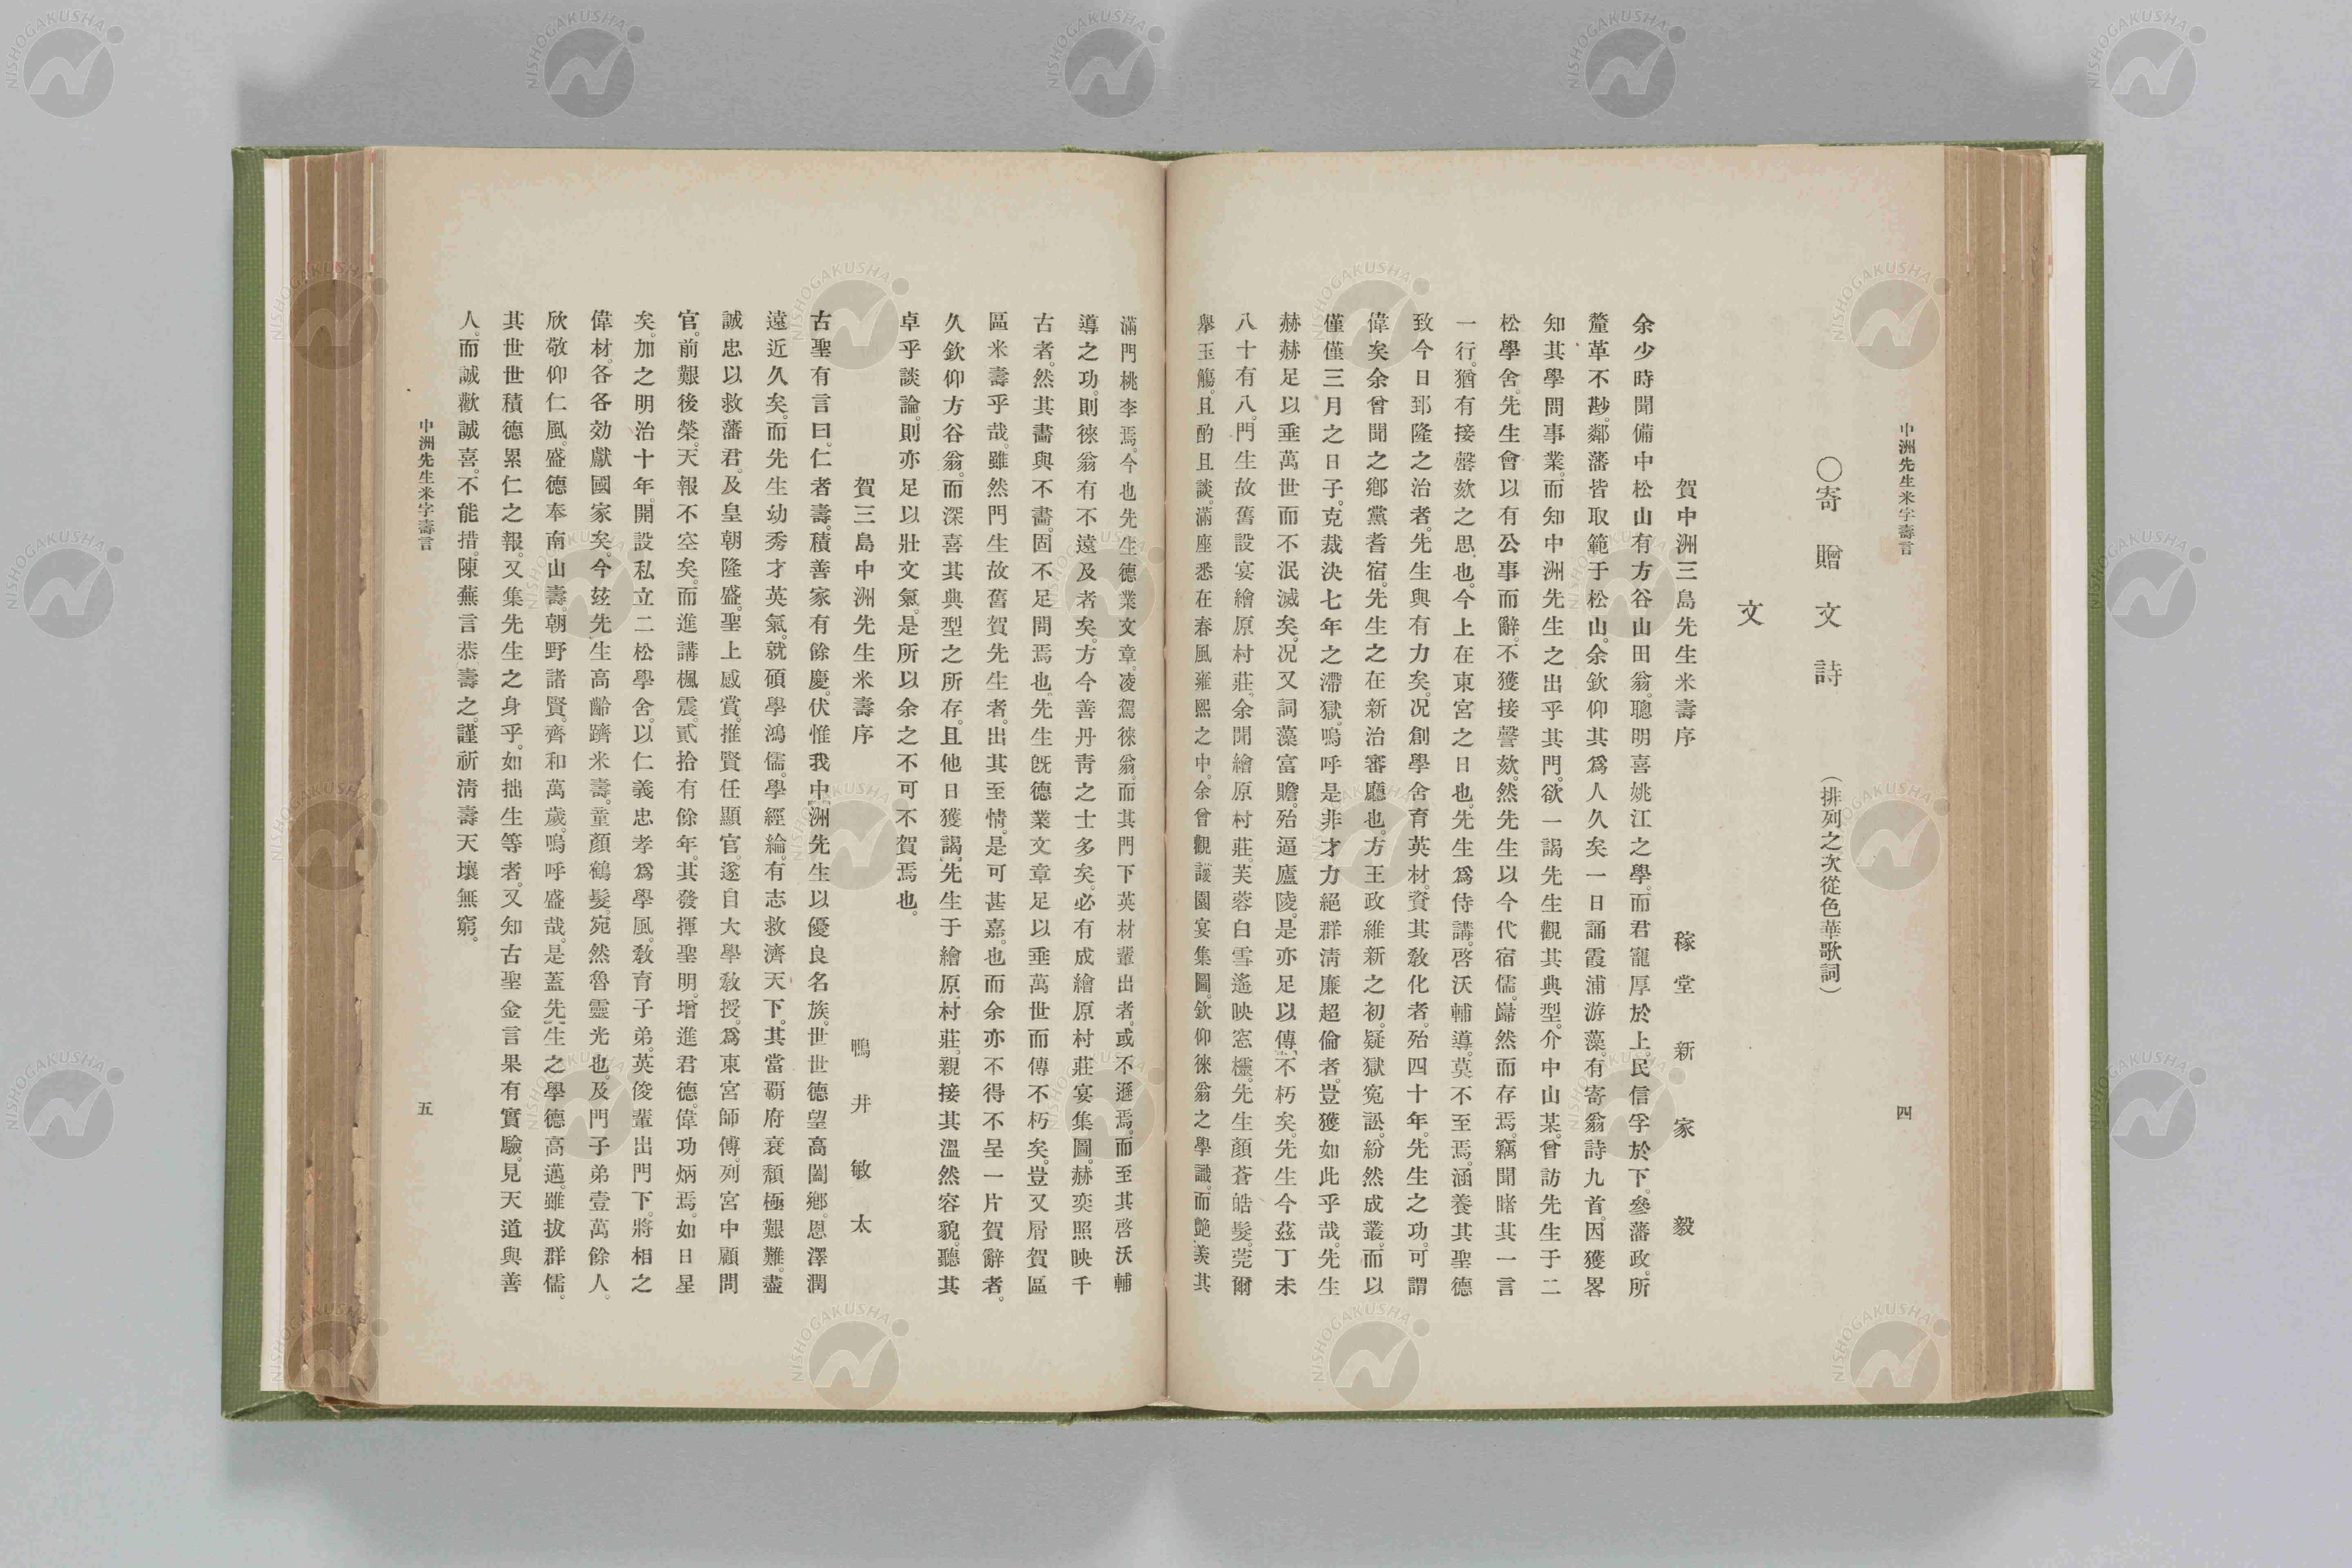 中洲先生米字壽言
四
〇寄贈文詩
(排列之次從色華歌詞)
文
賀中洲三島先生米壽序
稼堂 新家毅
余少時聞備中松山有方谷山田翁。聰明喜姚江之學。而君寵厚於上。民信孚於下。參藩政。所
釐革不尠。鄰藩皆取範于松山。余欽仰其爲人久矣一日誦霞浦游藻。有寄翁詩九首。因獲畧
知其學問事業。而知中洲先生之出乎其門。欲一謁先生觀其典型。介中山某。曾訪先生于二
松學舍。先生會以有公事而辭。不獲接謦欬。然先生以今代宿儒。巋然而存焉。竊聞睹其一言
一行。猶有接謦欬之思也。今上在東宮之日也。先生爲侍講。啓沃輔導。莫不至焉。涵養其聖德
致今日郅隆之治者。先生與有力矣。况創學舍育英材。資其教化者。殆四十年。先生之功。可謂
偉矣余曾聞之鄉黨耆宿。先生之在新治審廳也。方王政維新之初。疑獄寃訟。紛然成叢。而以
僅僅三月之日子。克裁決七年之滯獄。嗚呼是非才力絕群清廉超倫者。豈獲如此乎哉。先生
赫赫足以垂萬世而不泯滅矣。况又詞藻富贍。殆逼廬陵。是亦足以傳不朽矣。先生今茲丁未
八十有八。門生故舊設宴繪原村莊。余聞繪原村莊。芙蓉白雪遙映窓櫺。先生顏蒼皓髮。莞爾
舉玉觴。且酌且談。滿座悉在春風雍熙之中。余曾觀蘐園宴集圖。欽仰徠翁之學識。而艷羨其
滿門桃李焉。今也先生德業文章。凌駕徠翁。而其門下英材輩出者。或不遜焉。而至其啓沃輔
導之功。則徠翁有不遠及者矣。方今善丹青之士多矣。必有成繪原村莊宴集圖。赫奕照映千
古者。然其畵與不畵。固不足問焉也。先生旣德業文章足以垂萬世而傳不朽矣。豈又屑賀區
區米壽乎哉。雖然門生故舊賀先生者。出其至情。是可甚嘉也而余亦不得不呈一片賀辭者。
久欽仰方谷翁。而深喜其典型之所存。且他日獲謁先生于繪原村莊。親接其溫然容貌。聽其
卓乎談論。則亦足以壯文氣。是所以余之不可不賀焉也。
賀三島中洲先生米壽序
鴨井敏太
古聖有言曰。仁者壽。積善家有餘慶。伏惟我中洲先生以優良名族。世世德望高闔鄉。恩澤潤
遠近久矣。而先生幼秀才英氣。就碩學鴻儒。學經綸。有志救濟天下。其當覇府衰頹極艱難。盡
誠忠以救藩君。及皇朝隆盛。聖上感賞。推賢任顯官。遂自大學敎授。爲東宮師傅。列宮中顧問
官。前艱後榮。天報不空矣。而進講楓震。貳拾有餘年。其發揮聖明。增進君德。偉功炳焉。如日星
矣。加之明治十年。開設私立二松學舍。以仁義忠孝爲學風。敎育子弟。英俊輩出門下。將相之
偉材。各各効獻國家矣。今玆先生高齡躋米壽。童顏鶴髮。宛然魯靈光也。及門子弟壹萬餘人。
欣敬仰仁風。盛德奉南山壽。朝野諸賢。齊和萬歲。嗚呼盛哉。是蓋先生之學德高邁。雖拔群儒。
其世世積德累仁之報。又集先生之身乎。如拙生等者。又知古聖金言果有實驗。見天道與善
人。而誠歡誠喜。不能措。陳蕪言恭壽之。謹祈淸壽天壤無窮。
中洲先生米字壽言
五